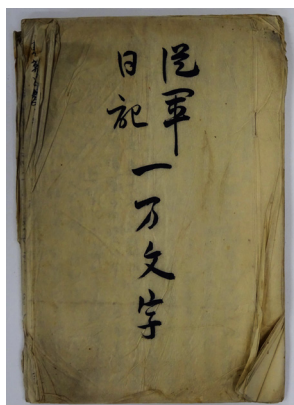 従軍
日記
一万文字